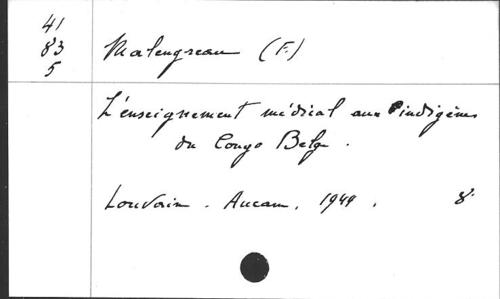 41
83
5
Malengreau (F.)
L'enseignement médical aux indigènes
du Congo Belge.
Louvain. Aucam, 1949. 8°